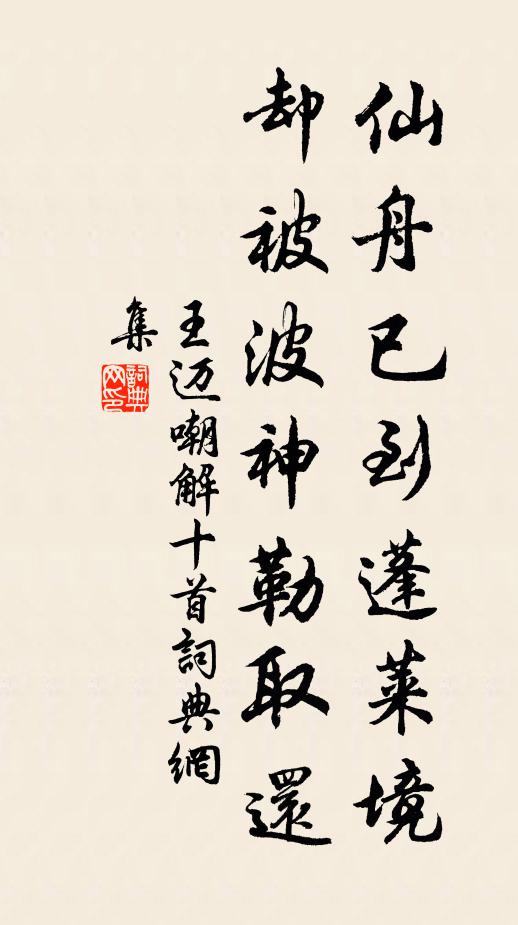 仙舟已到蓬莱境
却被波神勒取還
王迈嘲解十首詞典網
集
詞典网印